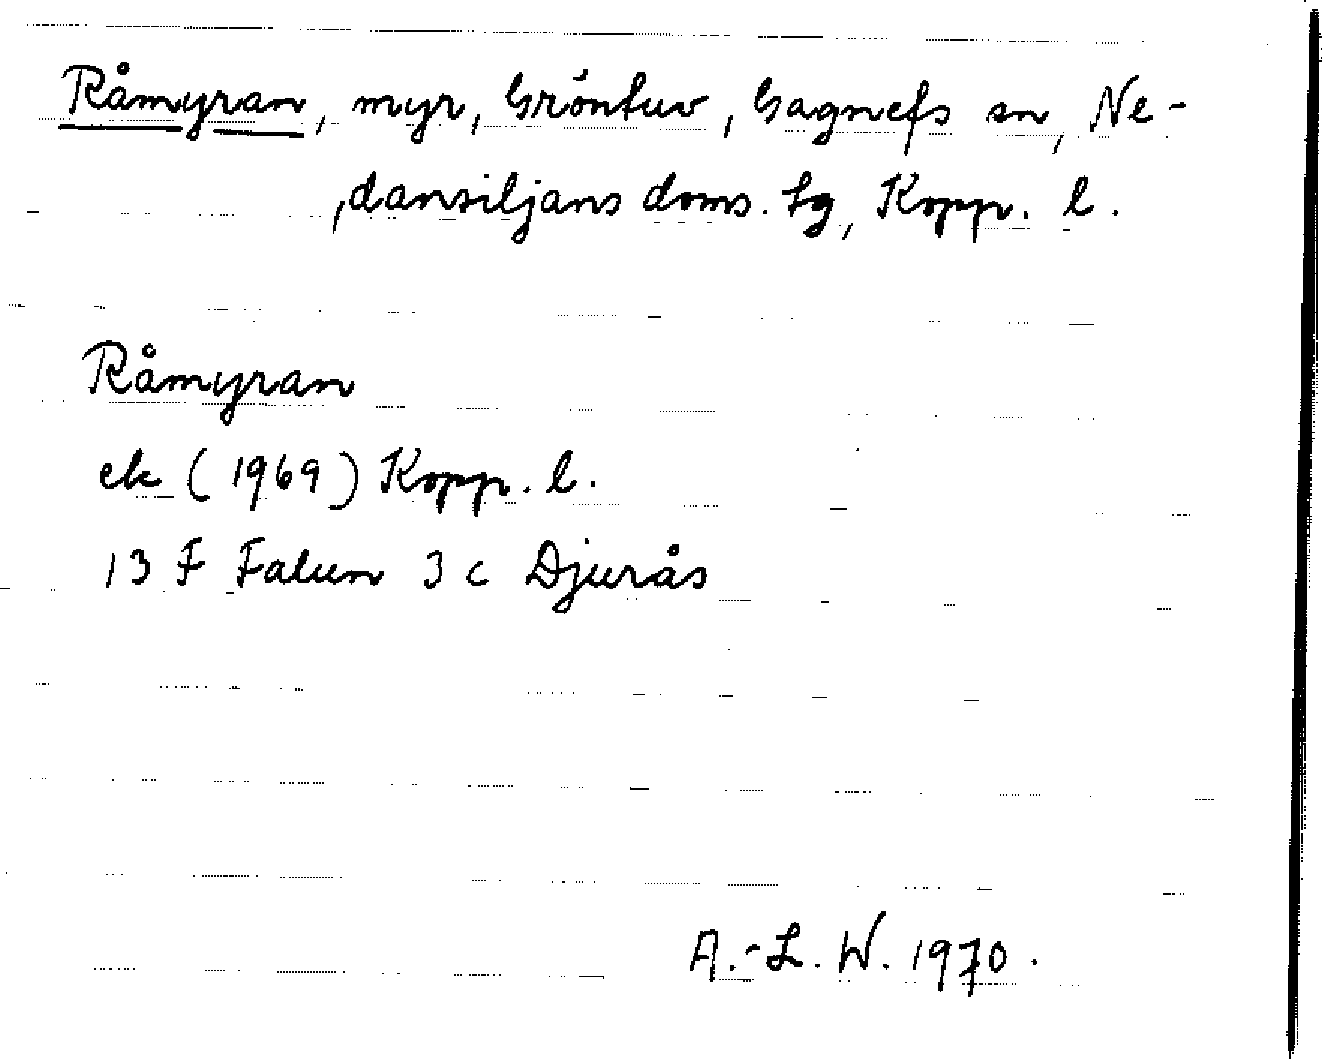 Råmyran, myr, Gröntuv, Gagnefs sn, Ne-
dansiljans doms. tg, Kopp. l.
Råmyran
ek (1969) Kopp. l.
13 F Falun 3 c Djurås
A.-L. W. 1970.